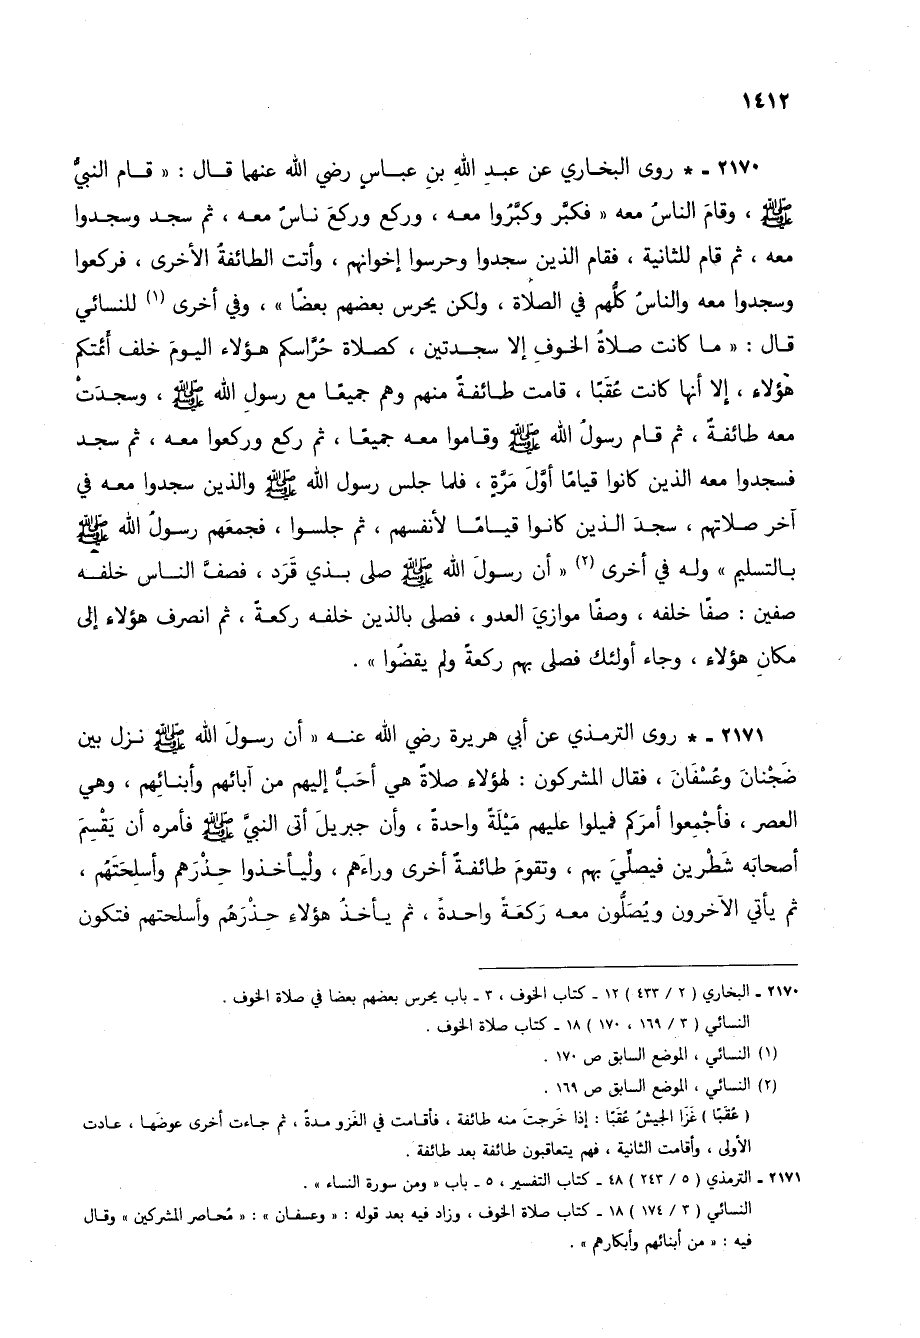 ١٤١٢
٢١٧٠ ـ * روى البخاري عن عبدِ اللهِ بنِ عباسٍ رضي الله عنهما قال : « قام النبيُّ
ﷺ ، وقامَ الناسُ معه « فكبَّر وكبَّرُوا معه ، وركع وركعَ ناسٌ معه ، ثم سجد وسجدوا
معه ، ثم قام للثانية ، فقام الذين سجدوا وحرسوا إخوانهم ، وأتت الطائفةُ الأخرى ، فركعوا
وسجدوا معه والناسُ كلُّهم في الصلاة ، ولكن يحرس بعضهم بعضًا » ، وفي أخرى (١) للنسائي
قال : « ما كانت صلاةُ الخوفِ إلا سجدتين ، كصلاة حُرَّاسكم هؤلاء اليومَ خلف أئمتكم
هؤلاء ، إلا أنها كانت عُقَبًا ، قامت طائفةٌ منهم وهم جميعًا مع رسول الله ﷺ ، وسجدَتْ
معه طائفةٌ ، ثم قام رسولُ الله ﷺ وقاموا معه جميعًا ، ثم ركع وركعوا معه ، ثم سجد
فسجدوا معه الذين كانوا قيامًا أوَّلَ مَرَّةٍ ، فلما جلس رسول الله ﷺ والذين سجدوا معه في
آخر صلاتهم ، سجدَ الذين كانوا قيامًا لأنفسهم ، ثم جلسوا ، فجمعَهم رسولُ الله ﷺ
بالتسليم » وله في أخرى (٢) « أن رسولَ الله ﷺ صلى بذي قَرَد ، فصفَّ الناس خلفه
صفين : صفًا خلفه ، وصفًا موازيَ العدو ، فصلى بالذين خلفه ركعةً ، ثم انصرف هؤلاء إلى
مكانِ هؤلاء ، وجاء أولئك فصلى بهم ركعةً ولم يقضُوا » .
٢١٧١ ـ * روى الترمذي عن أبي هريرة رضي الله عنه « أن رسولَ الله ﷺ نزل بين
ضَجْنانَ وعُسْفَانَ ، فقال المشركون : لهؤلاء صلاةٌ هي أحَبُّ إليهم من آبائهم وأبنائهم ، وهي
العصر ، فأجْمِعوا أمرَكم فميلوا عليهم مَيْلَةً واحدةً ، وأن جبريلَ أتى النبيَّ ﷺ فأمره أن يَقْسِمَ
أصحابَه شَطْرين فيصلِّيَ بهم ، وتقومَ طائفةٌ أخرى وراءَهم ، ولْيأخذوا حِذْرَهم وأسلِحَتَهُم ،
ثم يأتي الآخرون ويُصَلُّون معه رَكعَةً واحدةً ، ثم يأخذُ هؤلاءِ حِذْرَهُم وأسلحتهم فتكون
٢١٧٠ ـ البخاري ( ٢ / ٤٣٣ ) ١٢ ـ كتاب الخوف ، ٣ ـ باب يحرس بعضهم بعضا في صلاة الخوف .
النسائي ( ٣ / ١٦٩ ، ١٧٠ ) ١٨ ـ كتاب صلاة الخوف .
(١) النسائي ، الموضع السابق ص ١٧٠ .
(٢) النسائي ، الموضع السابق ص ١٦٩ .
( عُقبًا ) غَزَا الجيشُ عُقَبًا : إذا خَرجتْ منه طائفة ، فأقامت في الغَزو مدةً ، ثم جاءت أخرى عوضَها ، عادت
الأولى ، وأقامت الثانية ، فهم يتعاقبون طائفة بعد طائفة .
٢١٧١ ـ الترمذي ( ٥ / ٢٤٣ ) ٤٨ ـ كتاب التفسير ، ٥ ـ باب « ومن سورة النساء » .
النسائي ( ٣ / ١٧٤ ) ١٨ ـ كتاب صلاة الخوف ، وزاد فيه بعد قوله : « وعسفان » : « مُحاصر المشركين » وقال
فيه : « من أبنائهم وأبكارهم » .